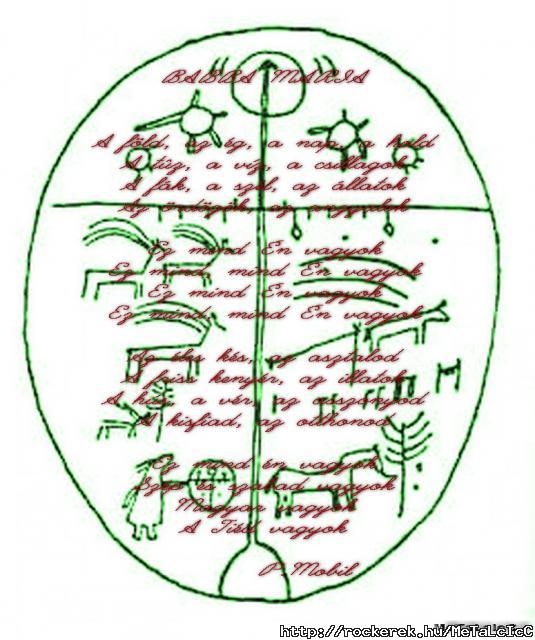 BABBA MARIA
A föld, az ég, a nap, a hold
A tűz, a víz, a csillagok
A fák, a szél, az állatok
Az ördögök, az angyalok
Ez mind Én vagyok
Ez mind, mind Én vagyok
Ez mind Én vagyok
Ez mind, mind Én vagyok
Az éles kés, az asztalod
A friss kenyér, az illatok
A hús, a vér, az asszonyod
A kisfiad, az otthonod
Ez mind én vagyok
Szép és szabad vagyok
Magyar vagyok
A Tiéd vagyok
P.Mobil
http://rockerek.hu/MeTaLcIcC